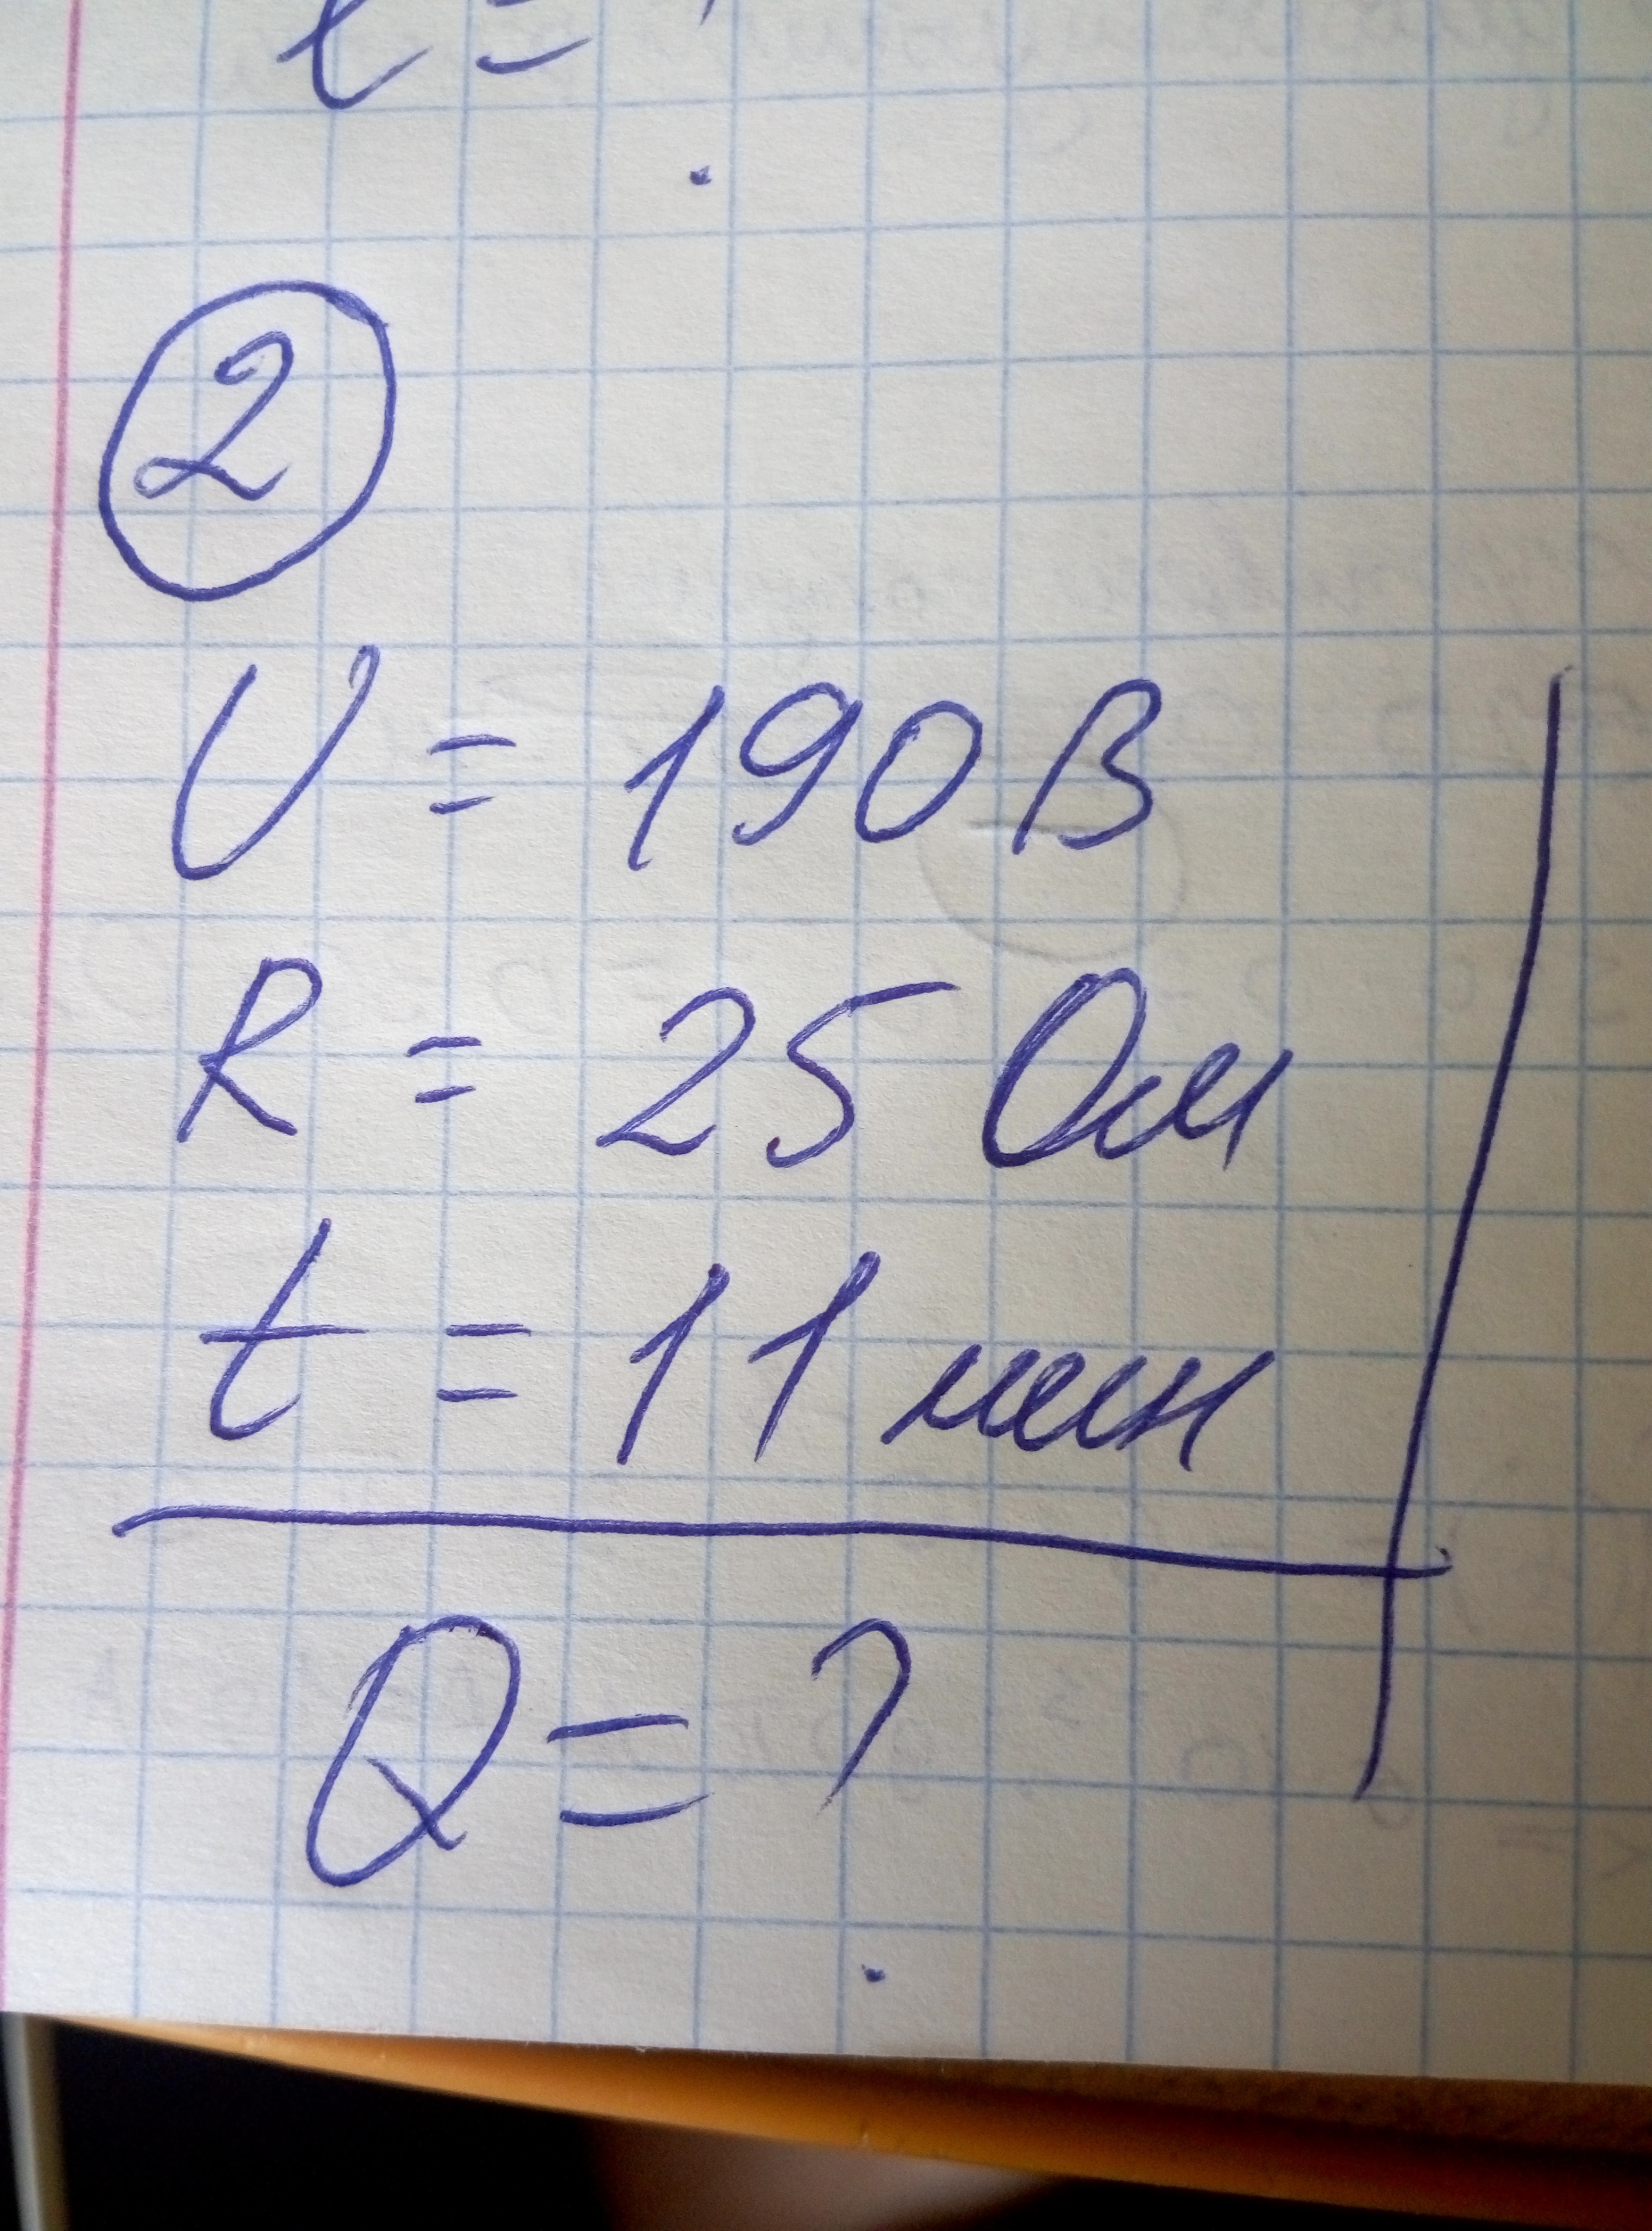 t = ?
2
U = 190 В
R = 25 Ом
t = 11 мин
Q = ?